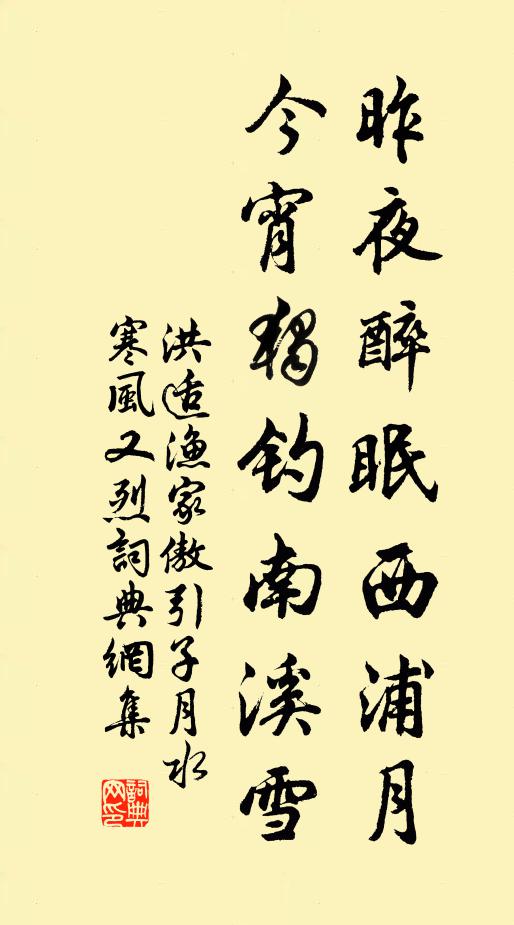 昨夜醉眠西浦月
今宵獨钓南溪雪
洪适漁家傲引子月水
寒風又烈詞典網集
詞典
网印